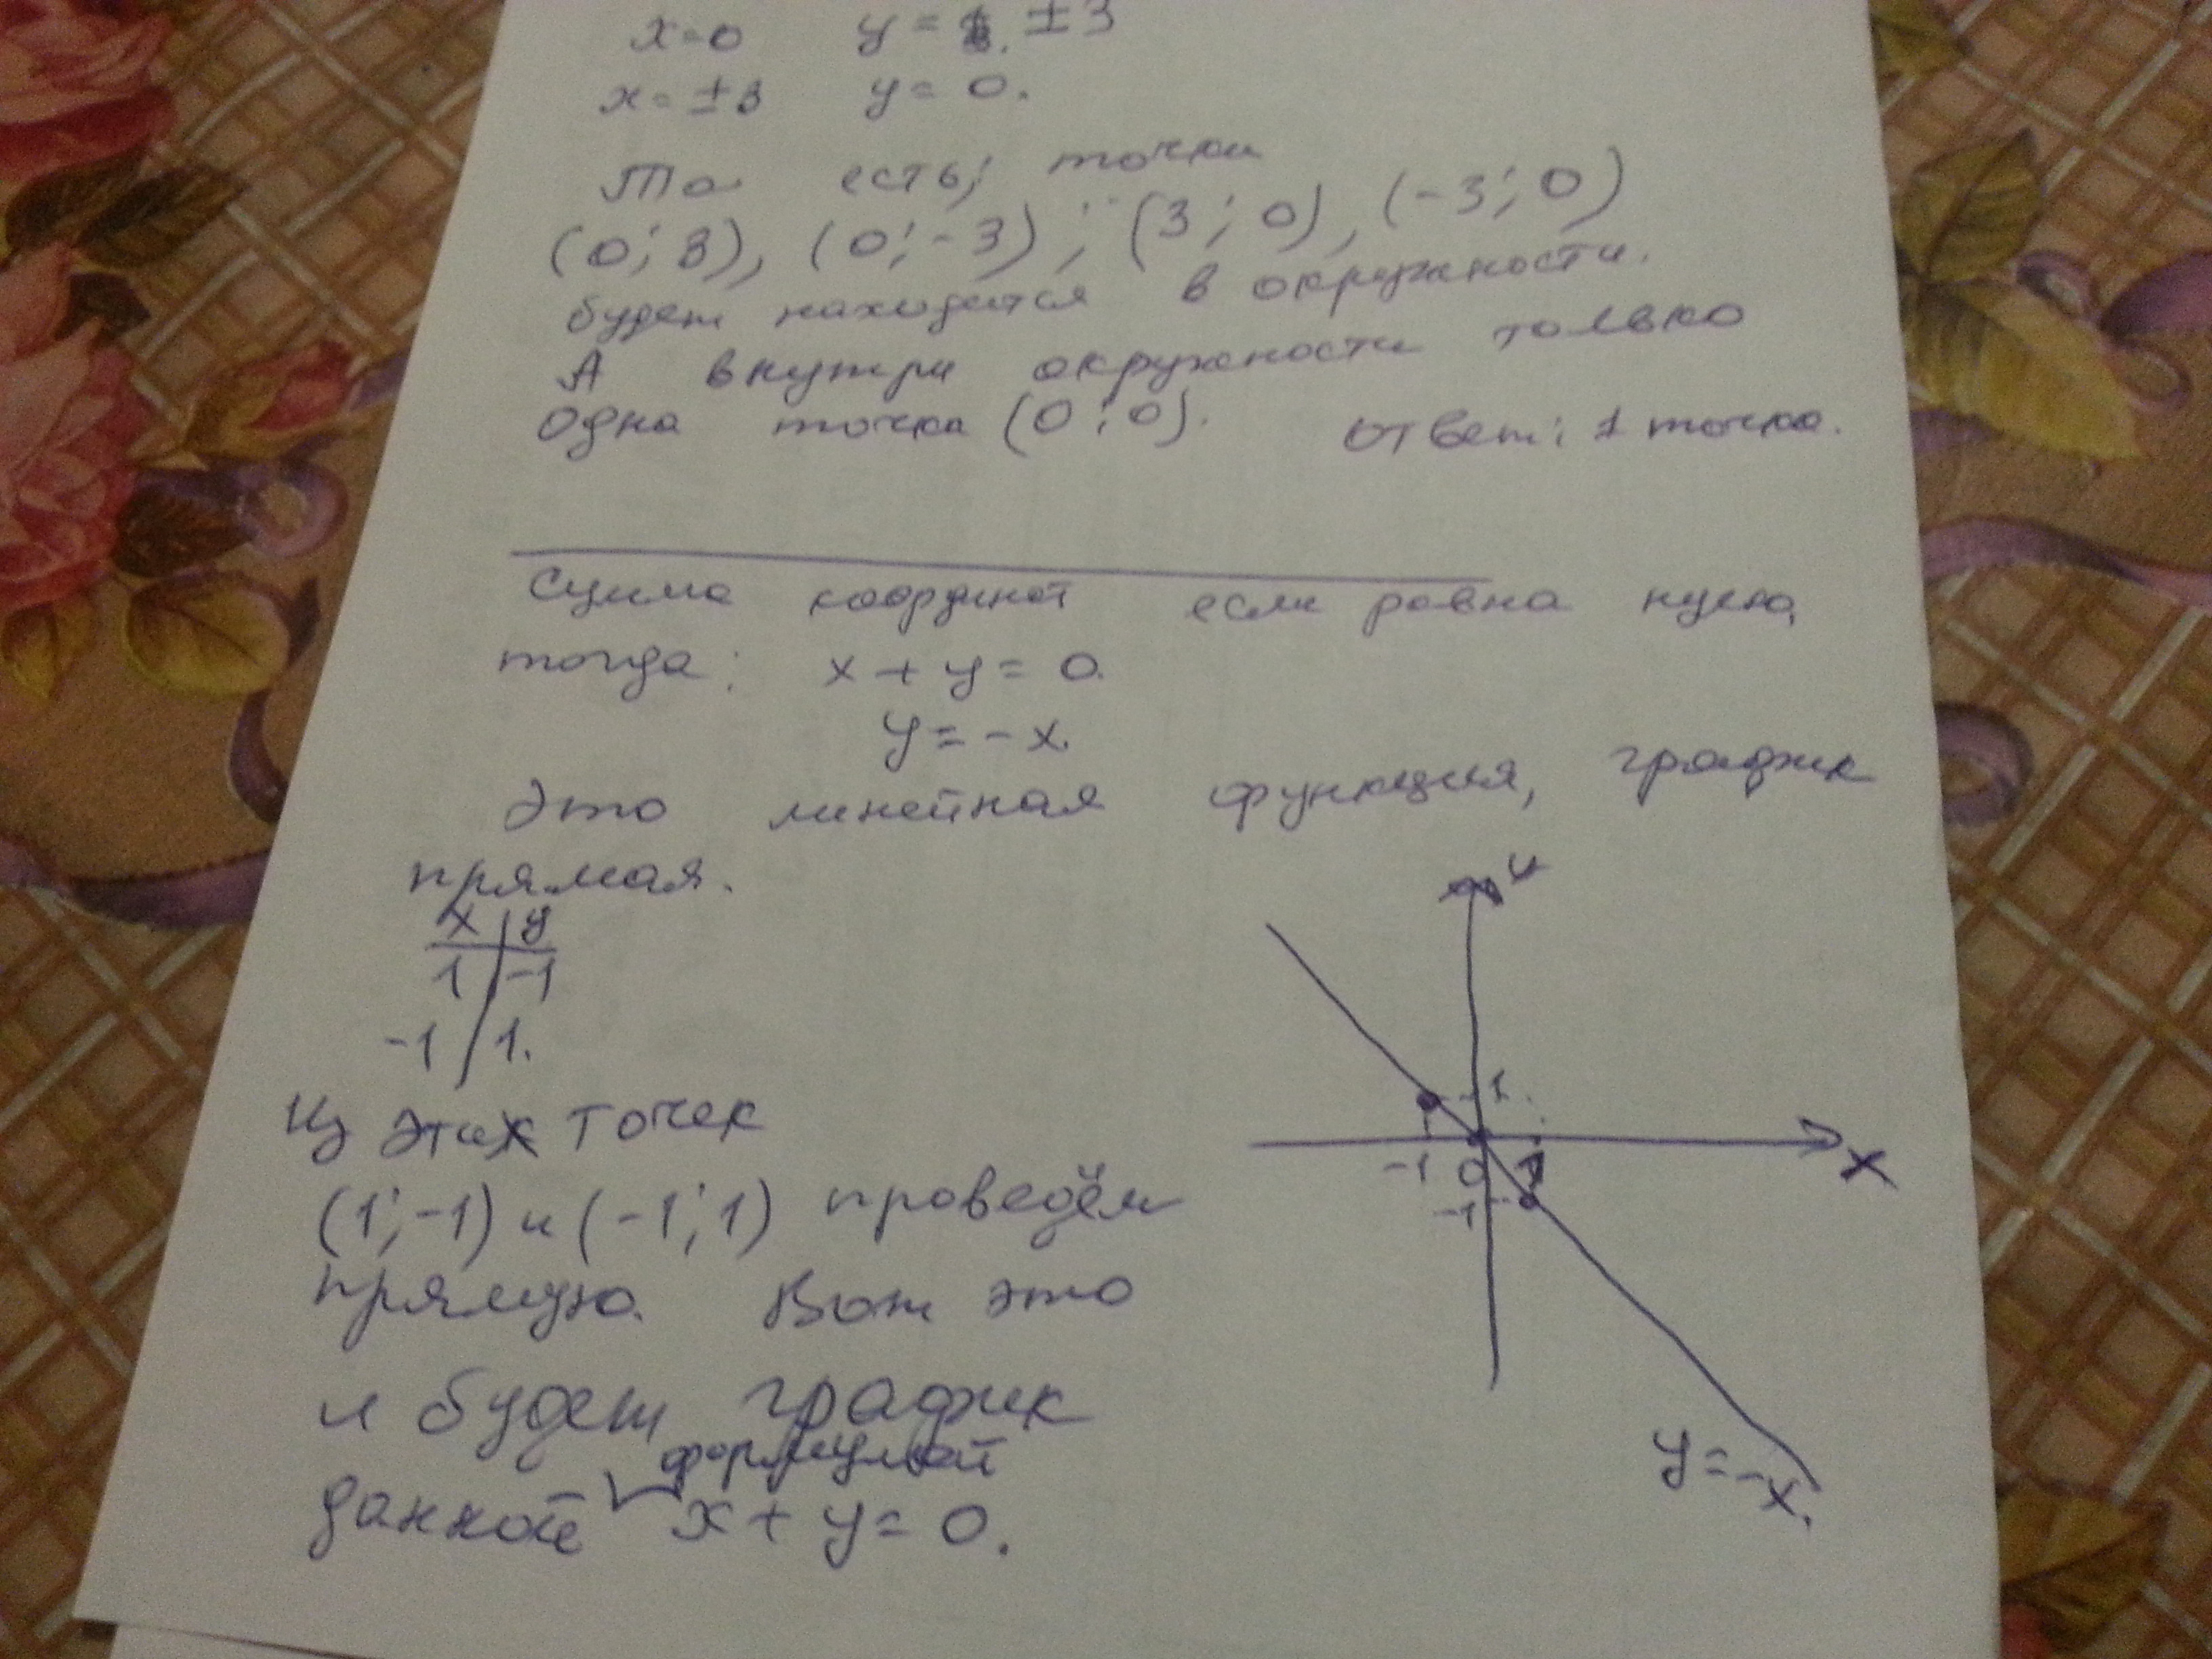 x=0 y= ±3
x=±3 y=0.
То есть; точки
(0;3), (0;-3); (3;0), (-3;0)
будет находится в окружности.
А внутри окружности только
одна точка (0;0). Ответ: 1 точка.
Сумма координат если равна нулю,
тогда: x+y=0.
y=-x.
Это линейная функция, график
прямая.
x y
1 -1
-1 1.
Из этих точек
(1;-1) и (-1;1) проведём
прямую. Вот это
и будет график
формулой
данной x+y=0.
y
1
-1 0 1
x
-1
y=-x.